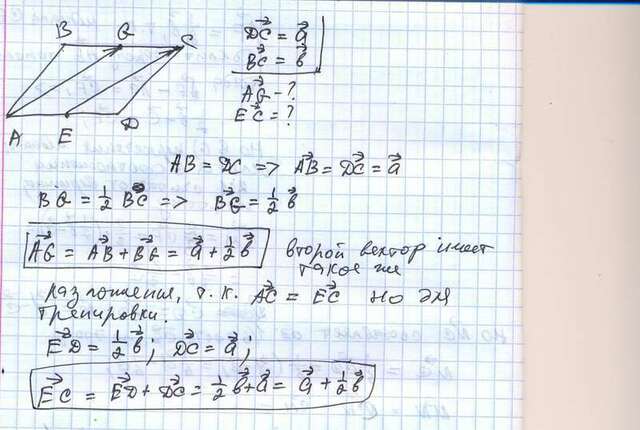 B G C
A E D
DC⃗ = a⃗
BC⃗ = b⃗
AG⃗ - ?
EC⃗ = ?
AB = DC => AB⃗ = DC⃗ = a⃗
BG = 1/2 BC => BG⃗ = 1/2 b⃗
AG⃗ = AB⃗ + BG⃗ = a⃗ + 1/2 b⃗ второй вектор имеет
такое же
разложения, т.к. AC⃗ = EC⃗ но для
тренировки:
ED⃗ = 1/2 b⃗; DC⃗ = a⃗;
EC⃗ = ED⃗ + DC⃗ = 1/2 b⃗ + a⃗ = a⃗ + 1/2 b⃗